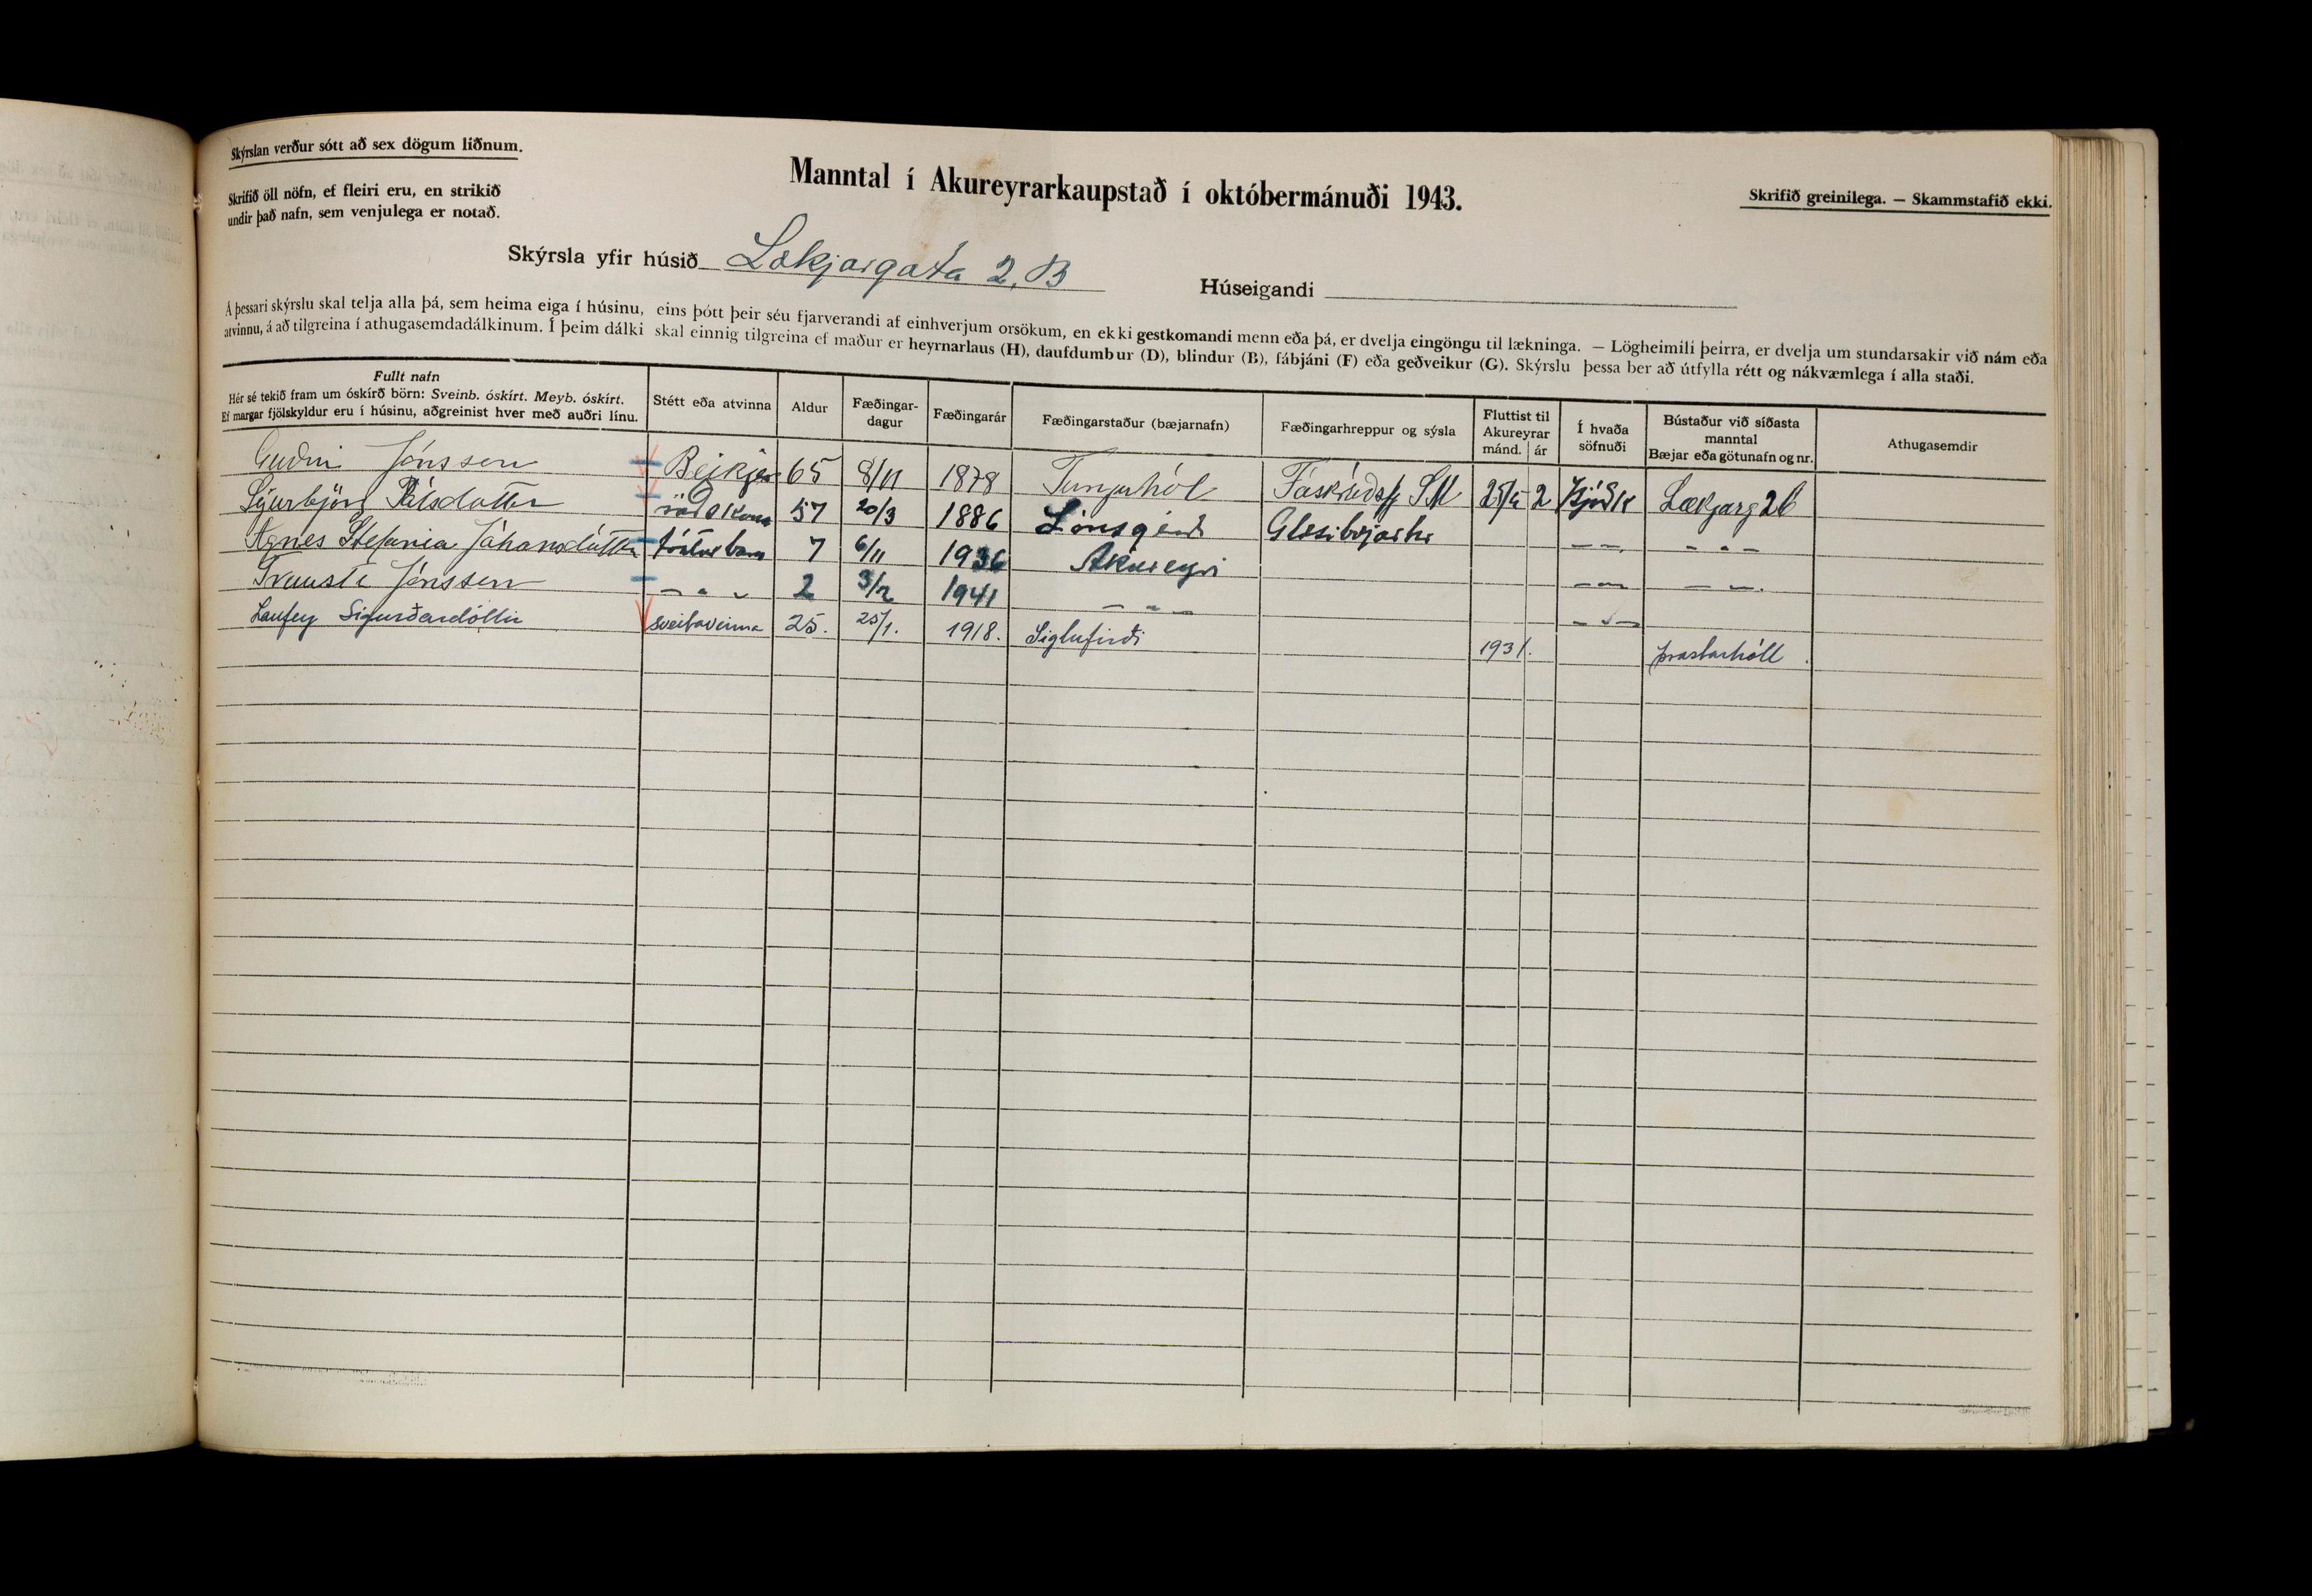 Skýrslan verður sótt að sex dögum liðnum.
Skrifið öll nöfn, ef fleiri eru, en strikið
undir það nafn, sem venjulega er notað.
Manntal í Akureyrarkaupstað í októbermánuði 1943.
Skrifið greinilega. — Skammstafið ekki.
Skýrsla yfir húsið Lækjargata 2, B
Húseigandi
Á þessari skýrslu skal telja alla þá, sem heima eiga í húsinu, eins þótt þeir séu fjarverandi af einhverjum orsökum, en ekki gestkomandi menn eða þá, er dvelja eingöngu til lækninga. — Lögheimili þeirra, er dvelja um stundarsakir við nám eða
atvinnu, á að tilgreina í athugasemdadálkinum. Í þeim dálki skal einnig tilgreina ef maður er heyrnarlaus (H), daufdumbur (D), blindur (B), fábjáni (F) eða geðveikur (G). Skýrslu þessa ber að útfylla rétt og nákvæmlega í alla staði.
Fullt nafn
Hér sé tekið fram um óskírð börn: Sveinb. óskírt. Meyb. óskírt.
Ef margar fjölskyldur eru í húsinu, aðgreinist hver með auðri línu.
Stétt eða atvinna
Aldur
Fæðingar-
dagur
Fæðingarár
Fæðingarstaður (bæjarnafn)
Fæðingarhreppur og sýsla
Fluttist til
Akureyrar
mánd. ár
Í hvaða
söfnuði
Bústaður við síðasta
manntal
Bæjar eða götunafn og nr.
Athugasemdir
Guðni Jónsson Beikjer 65 8/11 1878 Tunguhól Fáskrúdsfj SM 2 Þjóðk Lækjarg 2b
Sigurbjörg Pálsdóttir ráðskona 57 20/3 1886 Lónsgerði Glæsibæjarhr — — - " -
Agnes Stefania Jóhansdóttir fósturbarn 7 6/11 1936 Akureyri — — — —
Jónsson - " - 2 3/2 1941 - " - - " -
Laufey Sigurðardóttir sveitavinna 25. 25/1. 1918. Siglufirði 1931. Þrastarhóll.